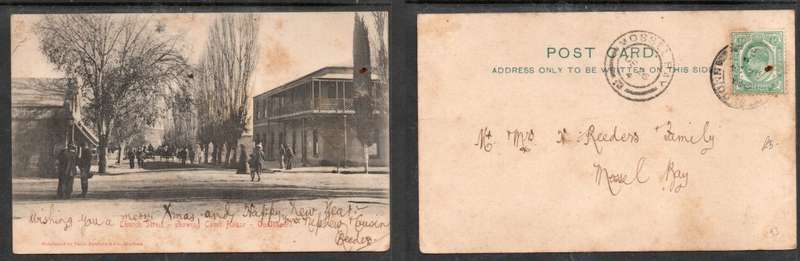 Wishing you a merry Xmas and Happy New Year
Church Street - showing Camp House -
from Nephew & Cousin
Reeders
POST CARD.
ADDRESS ONLY TO BE WRITTEN ON THIS SIDE.
MOSSEL BAY
Mr & Mrs Reeders & Family
Mossel Bay